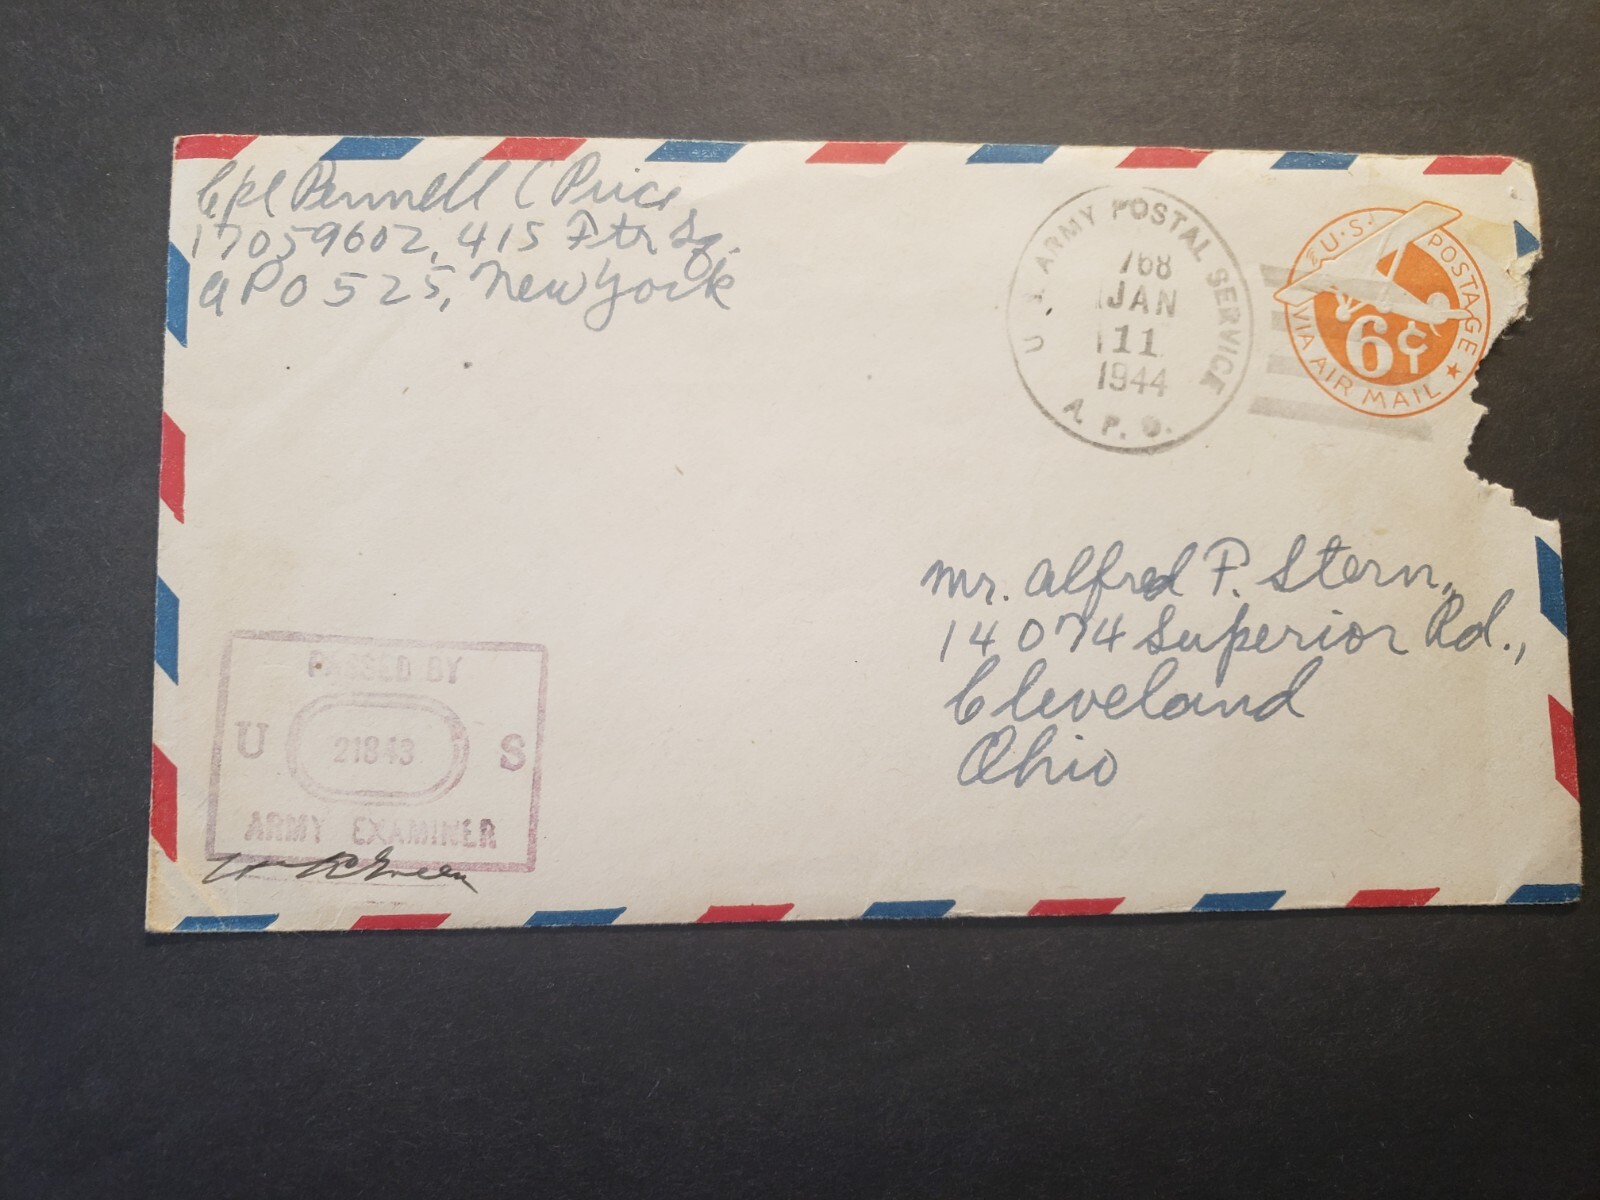 Cpl Bennell C Price
17059602, 415 Ftr Sq.
APO 525, New York
U.S. ARMY POSTAL SERVICE
768
JAN
11
1944
A.P.O.
U.S. POSTAGE
6¢
VIA AIR MAIL
Mr. Alfred F. Stern,
14074 Superior Rd.,
Cleveland
Ohio
PASSED BY
U 21843 S
ARMY EXAMINER
Green